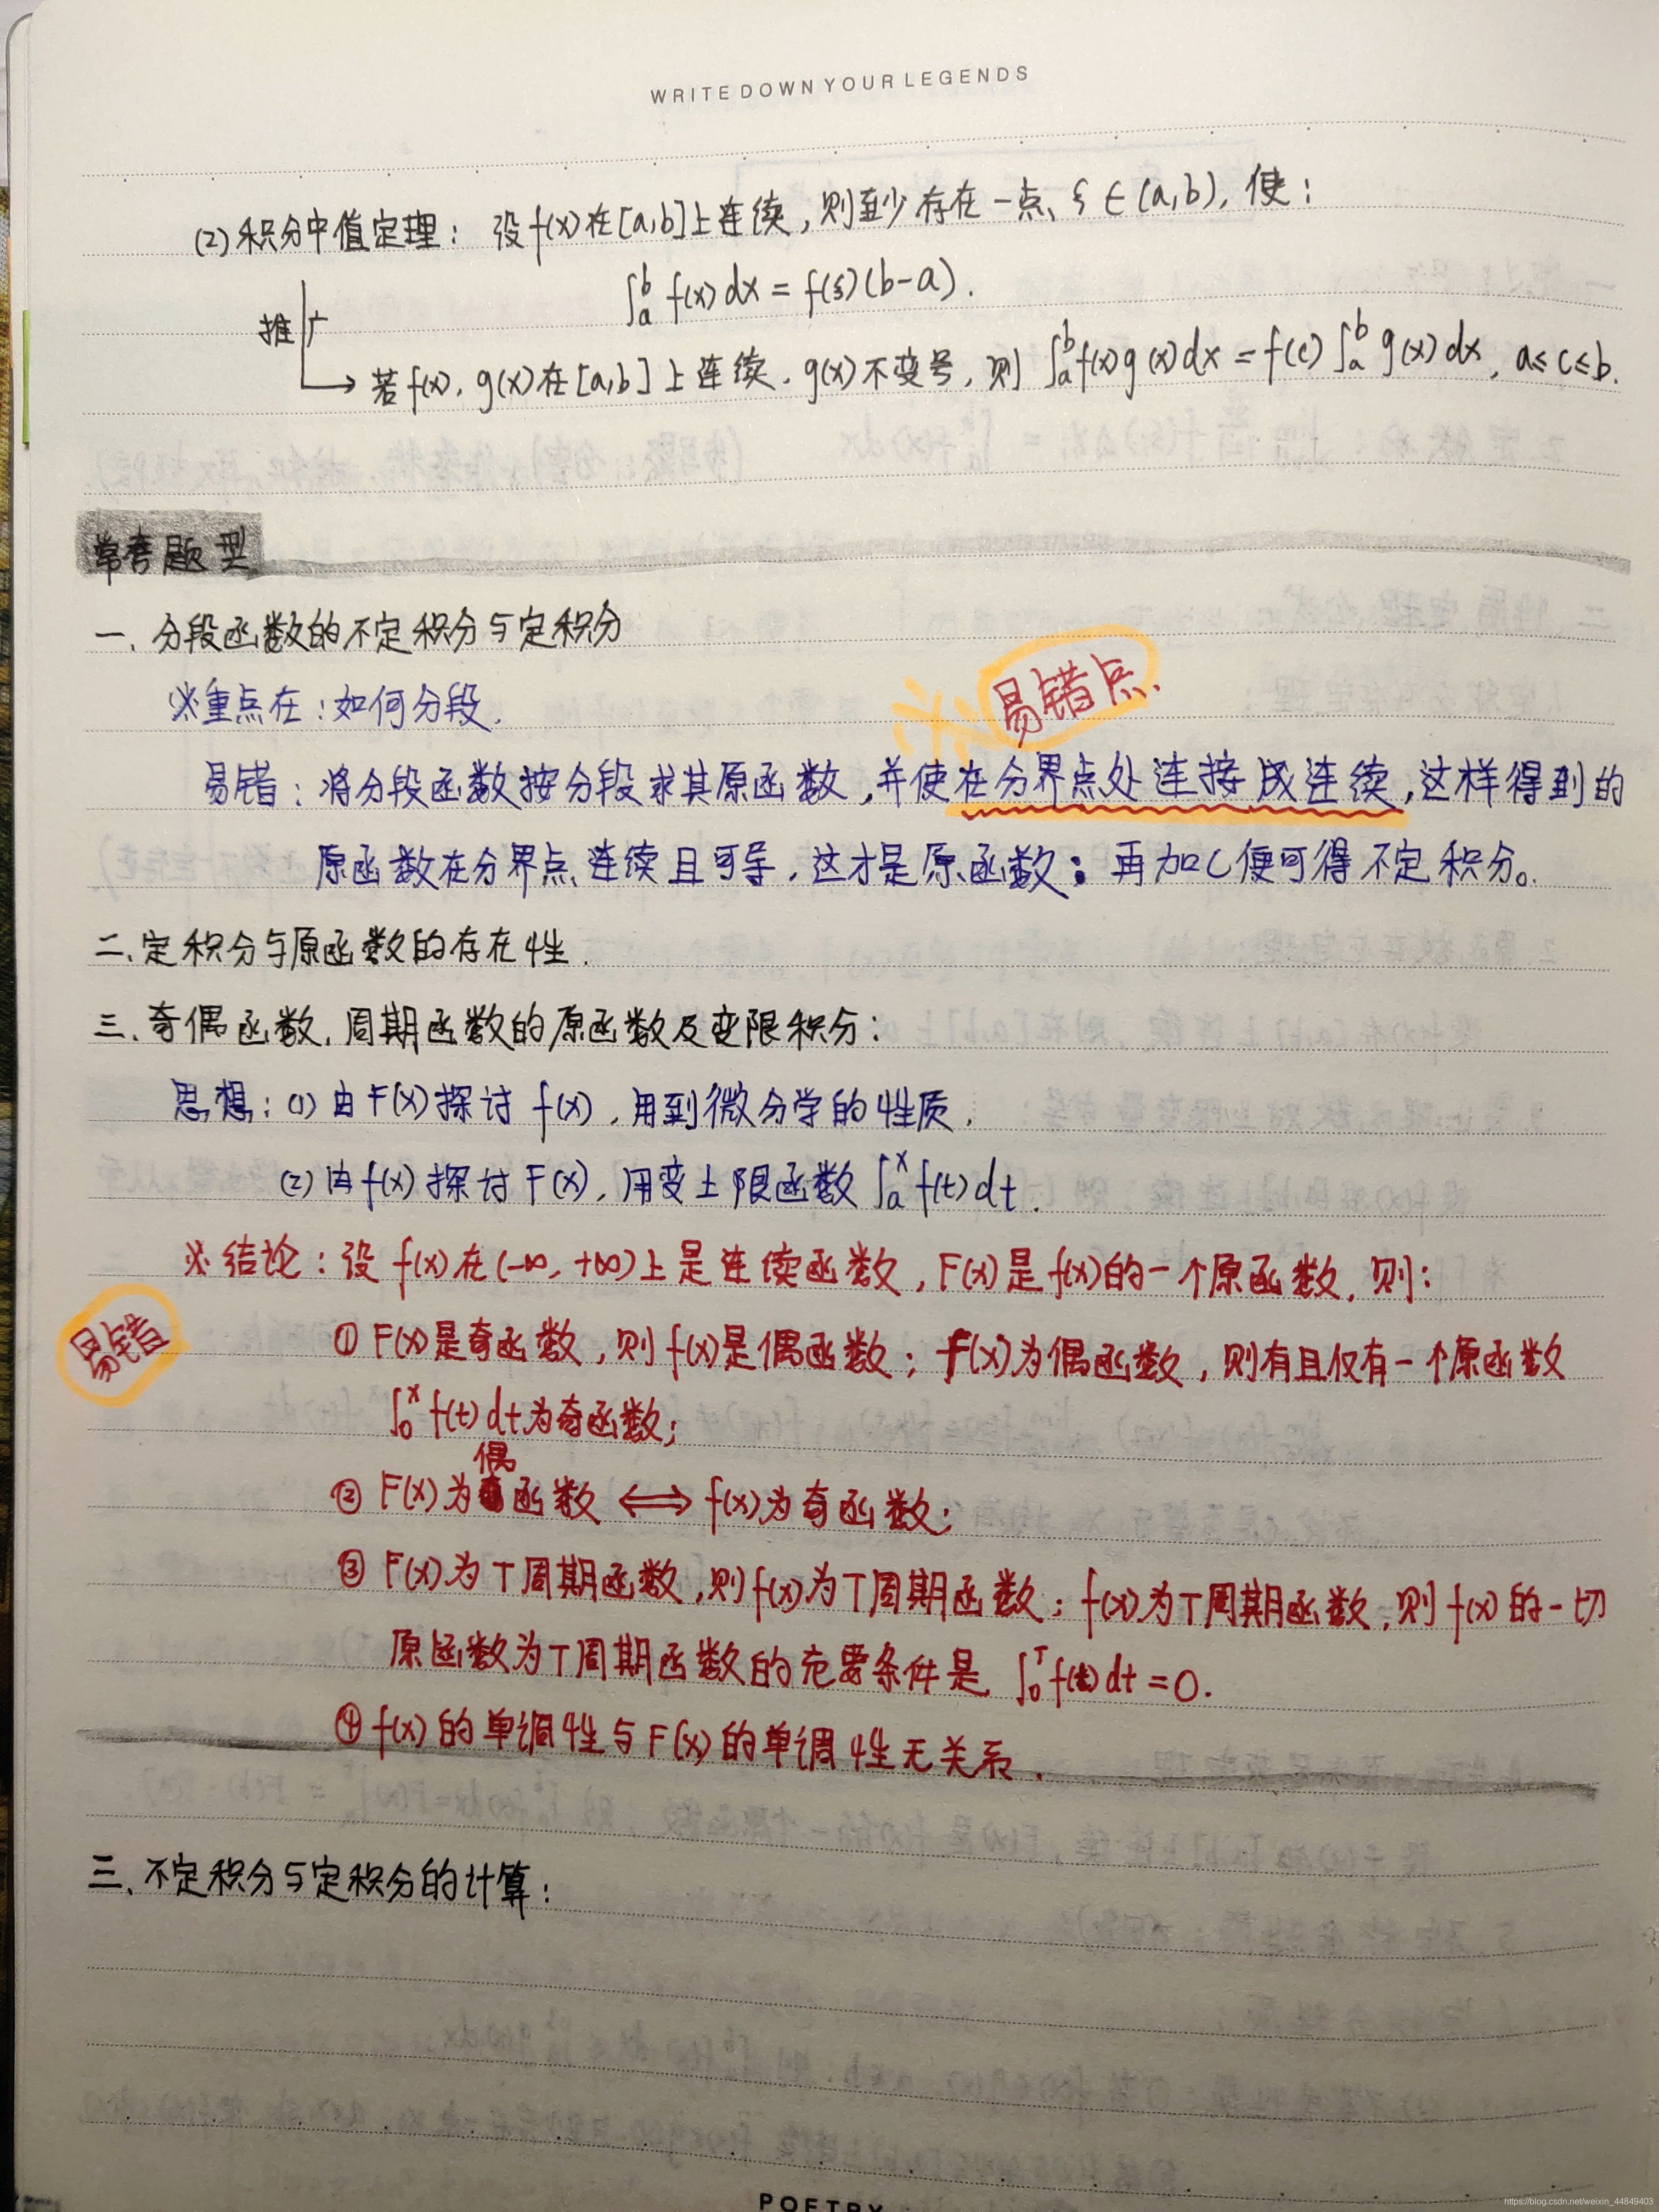 WRITE DOWN YOUR LEGENDS
(2) 积分中值定理: 设f(x)在[a,b]上连续,则至少存在一点ξ∈(a,b),使:
∫ₐᵇ f(x)dx = f(ξ)(b-a).
推广
→ 若f(x),g(x)在[a,b]上连续.g(x)不变号,则 ∫ₐᵇ f(x)g(x)dx = f(c)∫ₐᵇ g(x)dx, a≤c≤b.
常考题型
一、分段函数的不定积分与定积分
※重点在:如何分段.
※易错点.
易错:将分段函数按分段求其原函数,并使在分界点处连接成连续,这样得到的
原函数在分界点连续且可导,这才是原函数;再加C便可得不定积分。
二、定积分与原函数的存在性.
三、奇偶函数,周期函数的原函数及变限积分:
思想:(1)由F(x)探讨f(x),用到微分学的性质.
(2)由f(x)探讨F(x),用变上限函数∫ₐˣ f(t)dt.
※结论:设f(x)在(-∞,+∞)上是连续函数,F(x)是f(x)的一个原函数,则:
易错
① F(x)是奇函数,则f(x)是偶函数;f(x)为偶函数,则有且仅有一个原函数
∫₀ˣ f(t)dt为奇函数;
② F(x)为偶函数 ⟺ f(x)为奇函数;
③ F(x)为T周期函数,则f(x)为T周期函数;f(x)为T周期函数,则f(x)的一切
原函数为T周期函数的充要条件是 ∫₀ᵀ f(t)dt=0.
④ f(x)的单调性与F(x)的单调性无关系.
三、不定积分与定积分的计算:
POETRY
https://blog.csdn.net/weixin_44849403